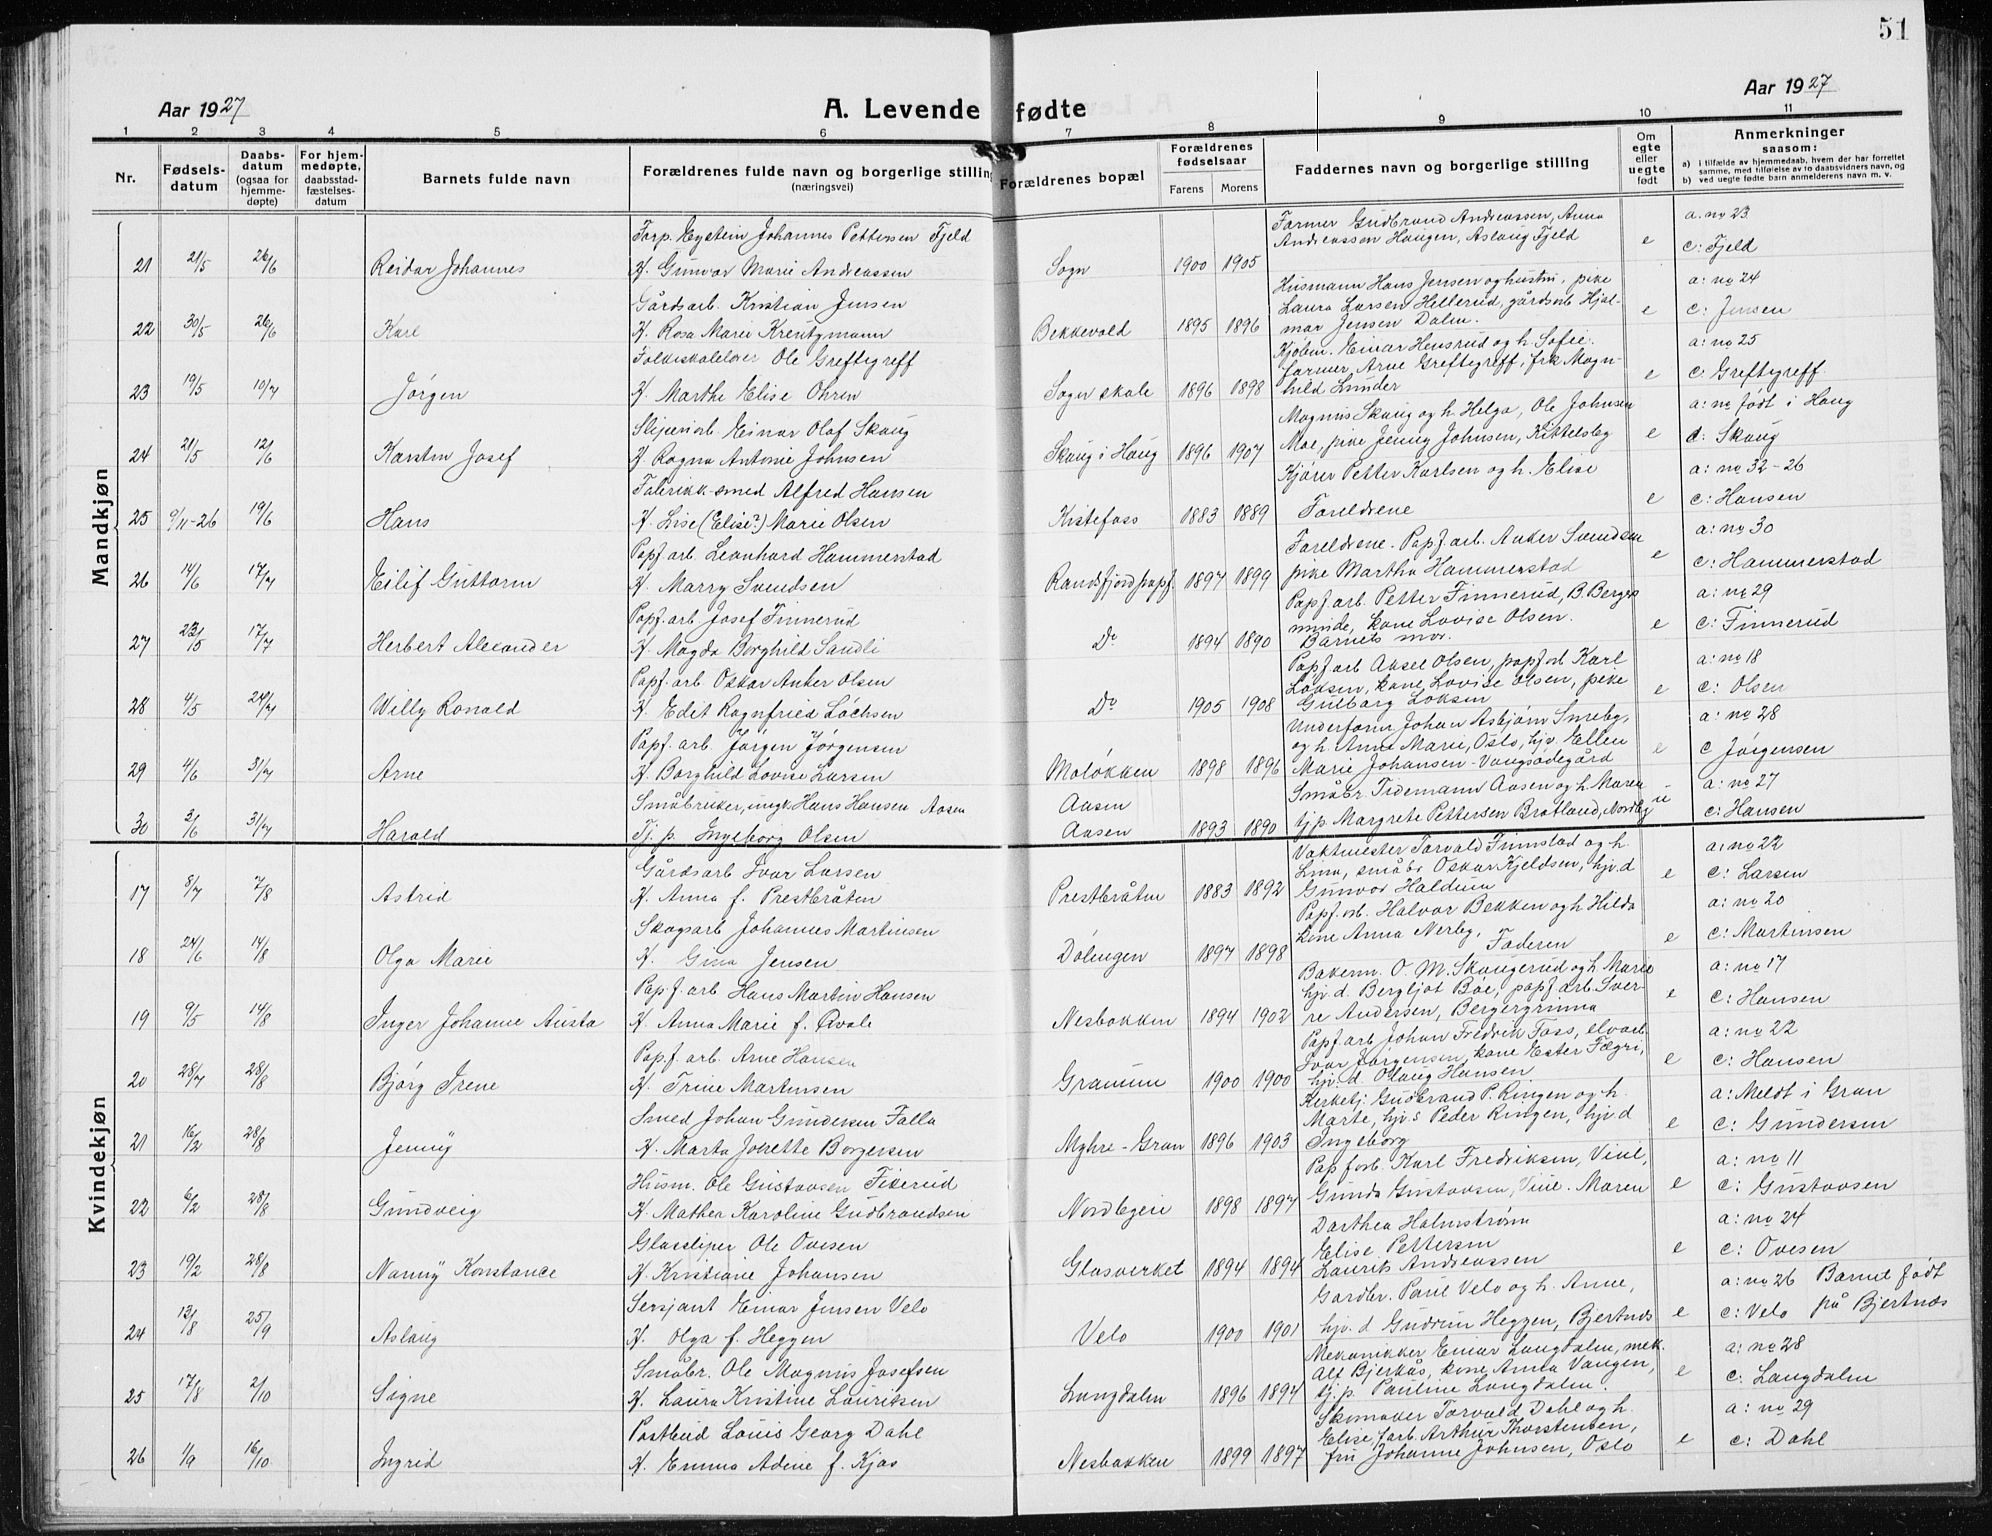 51
Aar 1927
A. Levende fødte
Aar 1927
1 2 3 4 5 6 7 8 9 10 11
Nr.
Fødsels-
datum
Daabs-
datum
(ogsaa for
hjemme-
døpte)
For hjem-
medøpte,
daabsstad-
fæstelses-
datum
Barnets fulde navn
Forældrenes fulde navn og borgerlige stilling
(næringsvei)
Forældrenes bopæl
Forældrenes
fødselsaar
Farens Morens
Faddernes navn og borgerlige stilling
Om
egte
eller
uegte
født
Anmerkninger
saasom:
a) i tilfælde av hjemmedaab, hvem der har forrettet
samme, med tilføielse av to daabsvidners navn, og
b) ved uegte fødte barn anmelderens navn m. v.
Mandkjøn
Forp. Eystein Johannes Pettersen Fjeld
Farmer Gudbrand Andreassen, Anna
a. no 23
Andreassen Haugen, Aslaug Fjeld
21 21/5 26/6 Reidar Johannes H. Gunvor Marie Andreassen Sogn 1900 1905 e c: Fjeld
Gårdsarb. Kristian Jensen
Husmann Hans Jensen og hustru, pike
a: no 24
Laura Larsen Hellerud, gårdsarb Hjal-
22 30/5 26/6 Karl H. Rosa Marie Krentzmann Bekkevold 1895 1896 mar Jensen Dalen. e c: Jensen
Folkeskolelærer Ole Greftegreff
Kjøbm. Einar Hensrud og h. Sofie.
a: no 25
farmer, Arne Greftegreff, frk Magn-
23 19/5 10/7 Jørgen H. Marthe Elise Ohren Sogn skole 1896 1898 hild Lunder e c. Greftegreff
Sliperiarb. Einar Olaf Skaug
Magnus Skaug og h. Helga, Ole Johnsen
a: no født i Haug
24 21/5 12/6 Karsten Josef H Ragna Antonie Johnsen Skaug i Haug 1896 1907 Moe, pike Jenny Johnsen, Kittelsby e d: Skaug
Fabrikk-smed Alfred Hansen
Kjører Petter Karlsen og h. Elise
a: no 32-26
25 9/11-26 19/6 Hans H. Lise (Elise?) Marie Olsen Kistefoss 1883 1889 Foreldrene e c: Hansen
Papf. arb. Leonhard Hammerstad
Foreldrene. Papf. arb. Anker Svendsen
a: no 30
26 14/6 17/7 Eilif Guttorm H. Marry Svendsen Randsfjord papf. 1897 1899 pike Martha Hammerstad e c: Hammerstad
Papf. arb. Josef Finnerud
Papf. arb. Petter Finnerud, B. Berger
a: no 29
minde, kone Lovise Olsen.
27 23/5 17/7 Herbert Alexander H. Magda Borghild Sandli Do 1894 1890 Barnets mor. e c: Finnerud
Papf. arb. Oskar Anker Olsen
Papf arb Aksel Olsen, papf arb Karl
a: no 18
Loksen, kone Lovise Olsen, pike
28 4/5 24/7 Willy Ronald H. Edit Ragnfried Lochsen Do 1905 1908 Gulborg Loksen e c: Olsen
Papf. arb Jørgen Jørgensen
Underform Johan Asbjørn Smeby,
a: no 28
og h. Anna Marie, Oslo, hjv. Ellen
29 4/6 31/7 Arne H. Borghild Lovise Larsen Moløkken 1898 1896 Marie Johansen-Vangsødegård e c Jørgensen
Småbruker, ungk. Hans Hansen Aasen Aasen
Småbr. Tidemann Aasen og h. Maren
a: no 27
30 3/6 31/7 Harald Tj. p. Ingeborg Olsen Aasen 1893 1890 tj p. Margrete Pettersen Bråtland, Nordby u c: Hansen
Kvindekjøn
Gårdsarb Ivar Larsen
Vaktmester Torvald Finnstad og h.
a: no 22
Lina, småbr Oskar Kjeldsen, hjv. d
17 8/7 7/8 Astrid H. Anna f. Prestbråten Prestbråten 1883 1892 Gunvor Haldum e c: Larsen
Skogsarb Johannes Martinsen
Papf. arb. Halvor Bekken og h. Hilda
a: no 20
kone Anna Nerby, Faderen
18 24/6 14/8 Olga Marie H. Gina Jensen Dølengen 1897 1898 e c: Martinsen
Pap. f. arb Hans Martin Hansen
Bakerm. O. M. Skaugerud og h. Marie
a: no 17
hjv. d. Bergljot Bøe, papf. arb. Sver-
19 9/5 14/8 Inger Johanne Austa H. Anna Marie f. Øvale Nesbakken 1894 1902 re Andersen, Bergergrinna e c: Hansen
Papf. arb. Arne Hansen
Papf. arb Johan Fredrik Foss, elvarb.
a: no 22
Ivar Jørgensen, kone Ester Fægri,
20 28/7 28/8 Bjørg Irene H. Trine Martinsen Gramum 1900 1900 hjv. d. Olaug Hansen e c: Hansen
Smed Johan Gundersen Falla
Kirketj. Gudbrand P. Ringen og h.
a: Meldt i Gran
Marte, hjv. s Peder Ringen, hjv. d
21 16/2 28/8 Jenny H. Marta Josette Borgersen Myhre-Gran 1896 1903 Ingeborg e c: Gundersen
Husm. Ole Gustavsen Fikerud
Papf arb. Karl Fredriksen, Viul,
a: no 11
22 6/2 28/8 Gundveig H. Mathea Karoline Gudbrandsen Nordbyeie 1898 1897 Gunda Gustavsen, Viul. Maren e c: Gustavsen
Glassliper Ole Ovesen
Darthea Halmstrøm
a: no 24
Elise Pettersen
23 19/2 28/8 Nanny Konstance H. Kristiane Johansen Glasverket 1894 1894 Laurits Andreassen e c: Ovesen
Sersjant Einar Jensen Velo
Gardbr. Paul Velo og h. Anne,
a: no 26 Barnet født
24 13/8 25/9 Aslaug H. Olga f. Heggen Velo 1900 1901 hjv. d Gudrun Heggen, Bjertnes e c: Velo på Bjertnes
Småbr. Ole Magnus Josefsen
Mekanikker Einar Langdalen, mek.
a: no 28
Alf Bjerkås, kone Anna Vangen,
25 17/8 2/10 Signe H. Laura Kristine Lauritsen Langdalen 1896 1894 tj. p. Pauline Langdalen. e c: Langdalen
Postbud Louis Georg Dahl
Skomaker Torvald Dahl og h.
a: no 29
Elise, farb. Arthur Thorstensen,
26 1/9 16/10 Ingrid H. Emma Adene f. Kjos Nesbakken 1899 1897 fru Johanne Johnsen, Oslo e c: Dahl